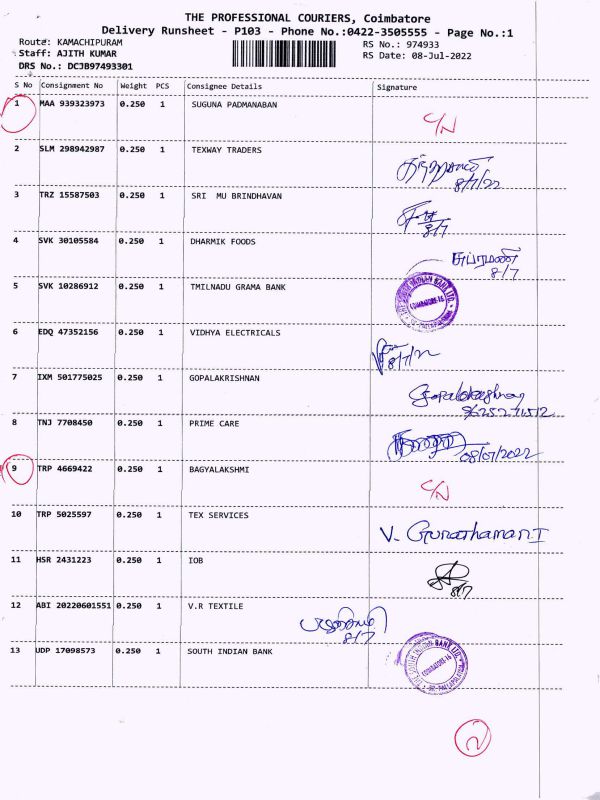 THE PROFESSIONAL COURIERS, Coimbatore
Delivery Runsheet - P103 - Phone No.:0422-3505555 - Page No.:1
Route: KAMACHIPURAM RS No.: 974933
Staff: AJITH KUMAR RS Date: 08-Jul-2022
DRS No.: DCJB97493301
S No Consignment No Weight PCS Consignee Details Signature
1 MAA 939323973 0.250 1 SUGUNA PADMANABAN C/N
2 SLM 298942987 0.250 1 TEXWAY TRADERS
8/7/22
3 TRZ 15587503 0.250 1 SRI MU BRINDHAVAN
8/7
4 SVK 30105584 0.250 1 DHARMIK FOODS சுப்ரமணி
8/7
5 SVK 10286912 0.250 1 TMILNADU GRAMA BANK THE SOUTH INDIAN BANK LTD. COIMBATORE-16
6 EDQ 47352156 0.250 1 VIDHYA ELECTRICALS
8/7/22
7 IXM 501775025 0.250 1 GOPALAKRISHNAN Gopalakrishnan
8 TNJ 7708450 0.250 1 PRIME CARE
08/07/2022
9 TRP 4669422 0.250 1 BAGYALAKSHMI C/N
10 TRP 5025597 0.250 1 TEX SERVICES V. GurathamanI
11 HSR 2431223 0.250 1 IOB
8/7
12 ABI 20220601551 0.250 1 V.R TEXTILE
8/7
13 UDP 17098573 0.250 1 SOUTH INDIAN BANK THE SOUTH INDIAN BANK LTD. COIMBATORE-16
2